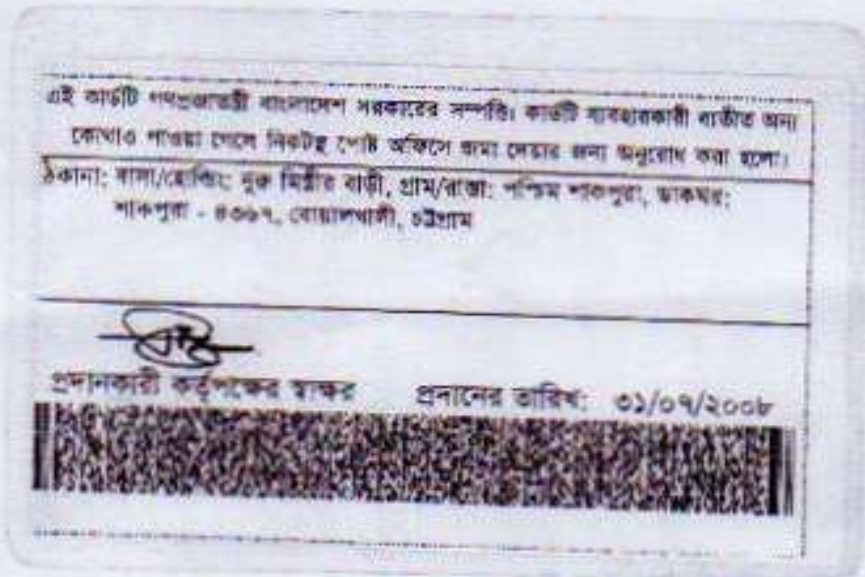 এই কার্ডটি গণপ্রজাতন্ত্রী বাংলাদেশ সরকারের সম্পত্তি। কার্ডটি ব্যবহারকারী ব্যতীত অন্য
কোথাও পাওয়া গেলে নিকটস্থ পোষ্ট অফিসে জমা দেয়ার জন্য অনুরোধ করা হলো।
ঠিকানা: বাসা/হোল্ডিং: নুরু মিস্ত্রীর বাড়ী, গ্রাম/রাস্তা: পশ্চিম শাকপুরা, ডাকঘর:
শাকপুরা - ৪৩৬৭, বোয়ালখালী, চট্টগ্রাম
প্রদানকারী কর্তৃপক্ষের স্বাক্ষর প্রদানের তারিখ: ৩১/০৭/২০০৮